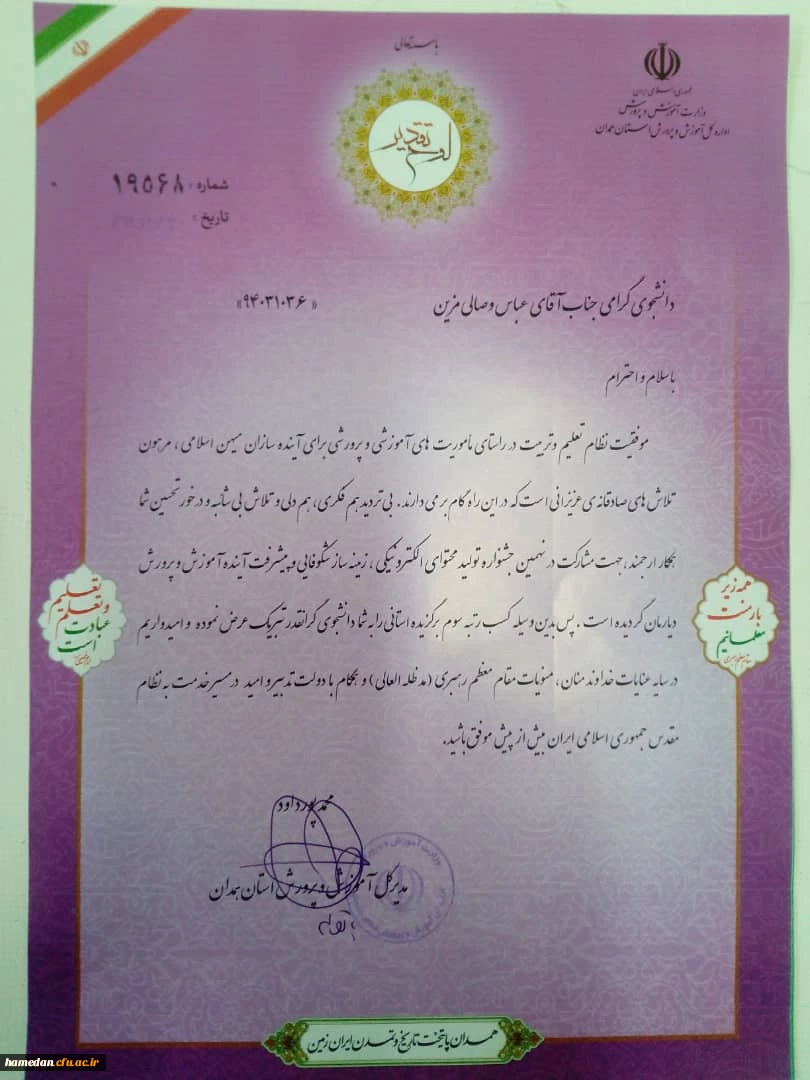 باسمه تعالی
جمهوری اسلامی ایران
وزارت آموزش و پرورش
اداره کل آموزش و پرورش استان همدان
لوح تقدیر
شماره : ۱۹۵۶۸
تاریخ :
دانشجوی گرامی جناب آقای عباس وصالی مزین « ۹۴۰۳۱۰۳۶ »
با سلام و احترام
موفقیت نظام تعلیم و تربیت در راستای مأموریت های آموزشی و پرورشی برای آینده سازان میهن اسلامی ، مرهون
تلاش های صادقانه ی عزیزانی است که در این راه گام بر می دارند . بی تردید هم فکری، هم دلی و تلاش بی شائبه و در خور تحسین شما
همکار ارجمند ،جهت مشارکت در نهمین جشنواره تولید محتوای الکترونیکی ، زمینه ساز شکوفایی و پیشرفت آینده آموزش و پرورش
دیارمان گردیده است . پس بدین وسیله کسب رتبه سوم برگزیده استانی را به شما دانشجوی گرانقدر تبریک عرض نموده و امیدواریم
در سایه عنایات خداوند منان، منویات مقام معظم رهبری (مد ظله العالی) و همگام با دولت تدبیر و امید در مسیر خدمت به نظام
مقدس جمهوری اسلامی ایران بیش از پیش موفق باشید.
همه زیر
بار منت
معلمانیم
تعلیم
و تعلم
عبادت
است
محمد پورداود
مدیرکل آموزش و پرورش استان همدان
همدان پایتخت تاریخ و تمدن ایران زمین
hamedan.cfu.ac.ir